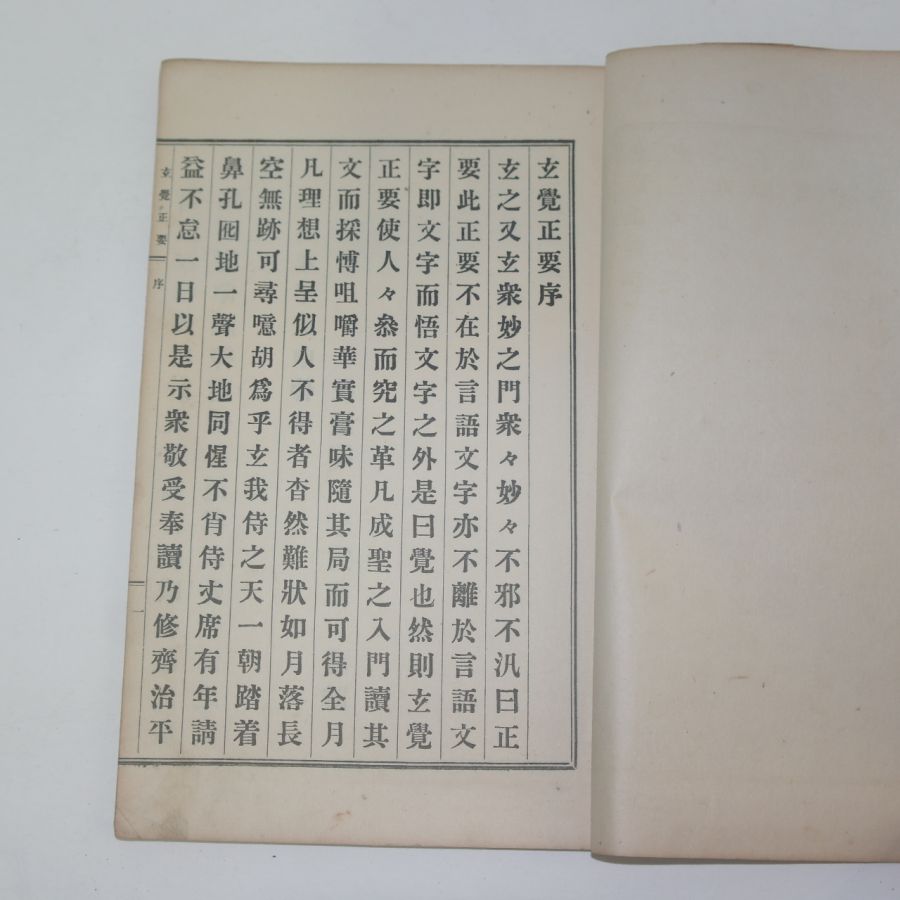 玄覺正要序
玄之又玄衆妙之門衆々妙々不邪不汎曰正
要此正要不在於言語文字亦不離於言語文
字即文字而悟文字之外是曰覺也然則玄覺
正要使人々叅而究之革凡成聖之入門讀其
文而採愽咀嚼華實膏味隨其局而可得全月
凡理想上呈似人不得者杳然難狀如月落長
空無跡可尋噫胡爲乎玄我侍之天一朝踏着
鼻孔囮地一聲大地同惺不肖侍丈席有年請
益不怠一日以是示衆敬受奉讀乃修齊治平
玄覺正要 序 一